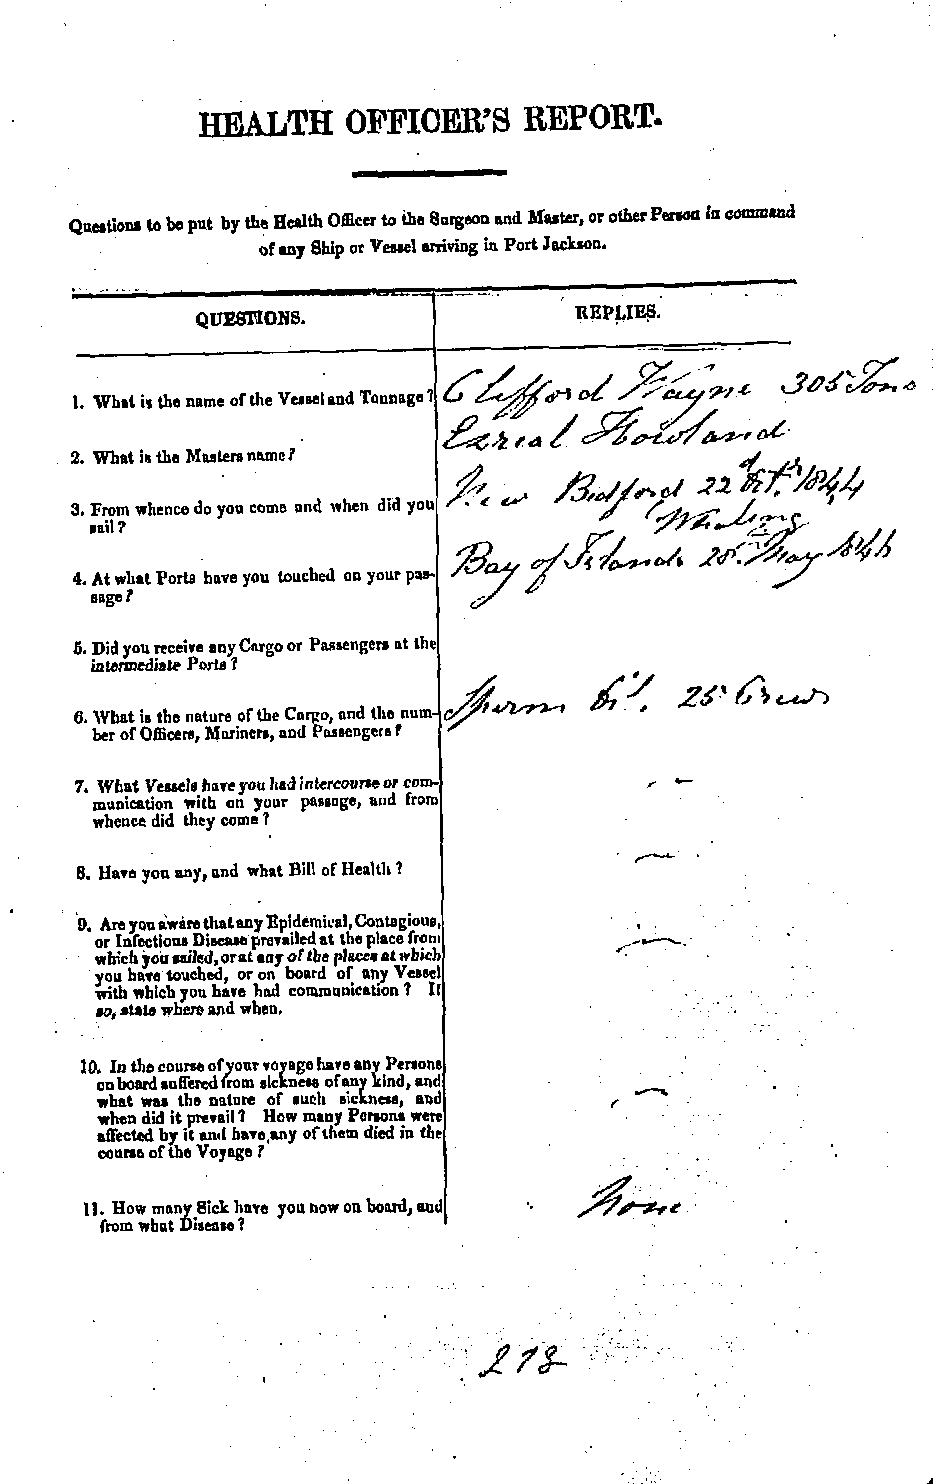 HEALTH OFFICER'S REPORT.
Questions to be put by the Health Officer to the Surgeon and Master, or other Person in command
of any Ship or Vessel arriving in Port Jackson.
QUESTIONS.
REPLIES.
1. What is the name of the Vessel and Tonnage?
Clifford Wayne 305 Tons
2. What is the Masters name?
Ezrial Howland
3. From whence do you come and when did you
sail?
New Bedford 22d Octr. 1844
Whaling
4. At what Ports have you touched on your pas-
sage?
Bay of Islands 28th May 1846
5. Did you receive any Cargo or Passengers at the
intermediate Ports?
6. What is the nature of the Cargo, and the num-
ber of Officers, Mariners, and Passengers?
Sperm Oil. 25 Crew
7. What Vessels have you had intercourse or com-
munication with on your passage, and from
whence did they come?
8. Have you any, and what Bill of Health?
9. Are you aware that any Epidemical, Contagious,
or Infectious Disease prevailed at the place from
which you sailed, or at any of the places at which
you have touched, or on board of any Vessel
with which you have had communication? If
so, state where and when.
10. In the course of your voyage have any Persons
on board suffered from sickness of any kind, and
what was the nature of such sickness, and
when did it prevail? How many Persons were
affected by it and have any of them died in the
course of the Voyage?
11. How many Sick have you now on board, and
from what Disease?
None